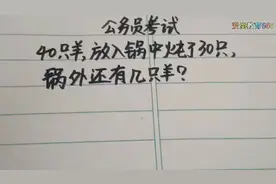 公务员考试
40只羊,放入锅中炖了30只,
锅外还有几只羊?